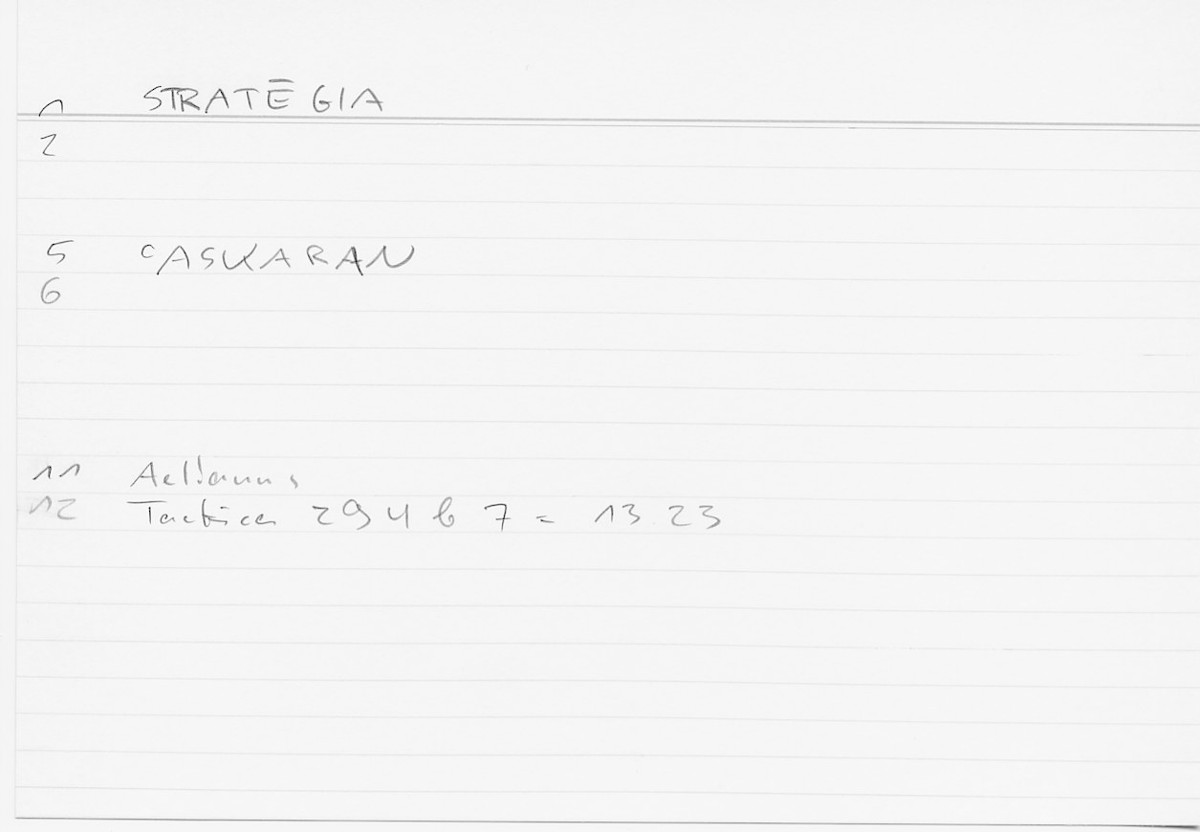 1 STRATĒGIA
2
5 cASKARAN
6
11 Aelianus
12 Tactica 294 b 7 = 13 23